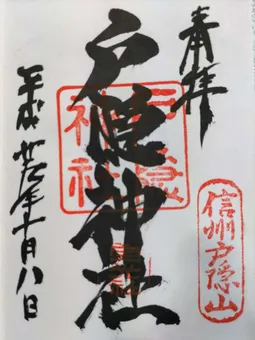 奉拝
信州戸隠山
戸隠
神社
戸隠神社
平成廿年十月八日